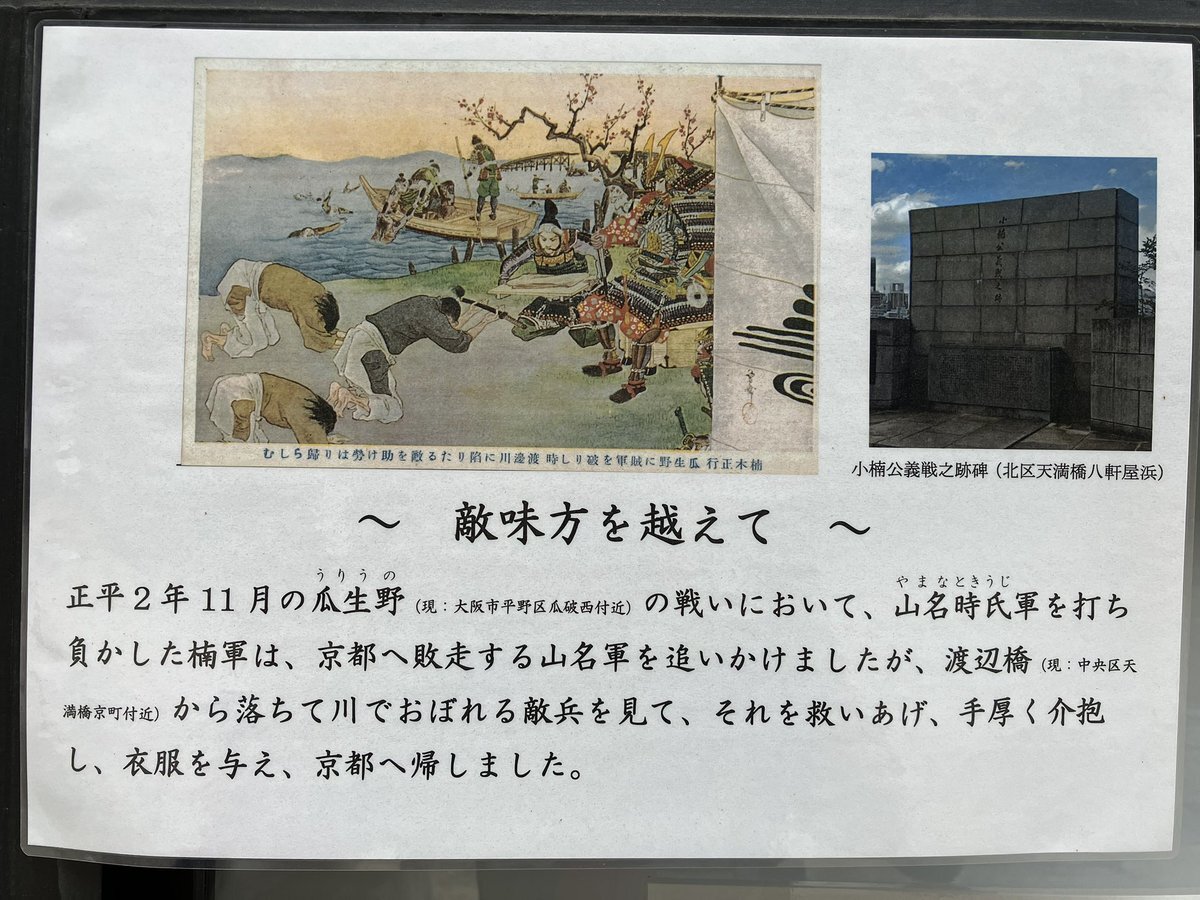 楠木正行 瓜生野に賊軍を破りし時 渡邊川に陥りたる敵を助け勞はり歸らしむ
小楠公義戰之跡
小楠公義戦之跡碑（北区天満橋八軒屋浜）
～ 敵味方を越えて ～
うりうの やまなときうじ
正平２年11月の瓜生野（現：大阪市平野区瓜破西付近）の戦いにおいて、山名時氏軍を打ち
負かした楠軍は、京都へ敗走する山名軍を追いかけましたが、渡辺橋（現：中央区天
満橋京町付近）から落ちて川でおぼれる敵兵を見て、それを救いあげ、手厚く介抱
し、衣服を与え、京都へ帰しました。